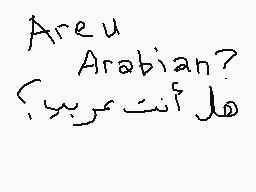 Are u
Arabian?
هل أنت عربي؟